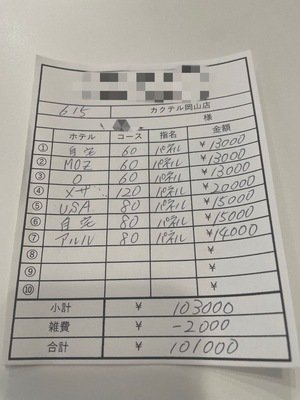 615 カクテル岡山店
様
ホテル コース 指名 金額
① 自宅 60 パネル ¥13000
② MOZ 60 パネル ¥13000
③ O 60 パネル ¥13000
④ メザ 120 パネル ¥20000
⑤ USA 80 パネル ¥15000
⑥ 自宅 80 パネル ¥15000
⑦ アルル 80 パネル ¥14000
⑧
⑨
⑩
小計 ¥ 103000
雑費 ¥ -2000
合計 ¥ 101000